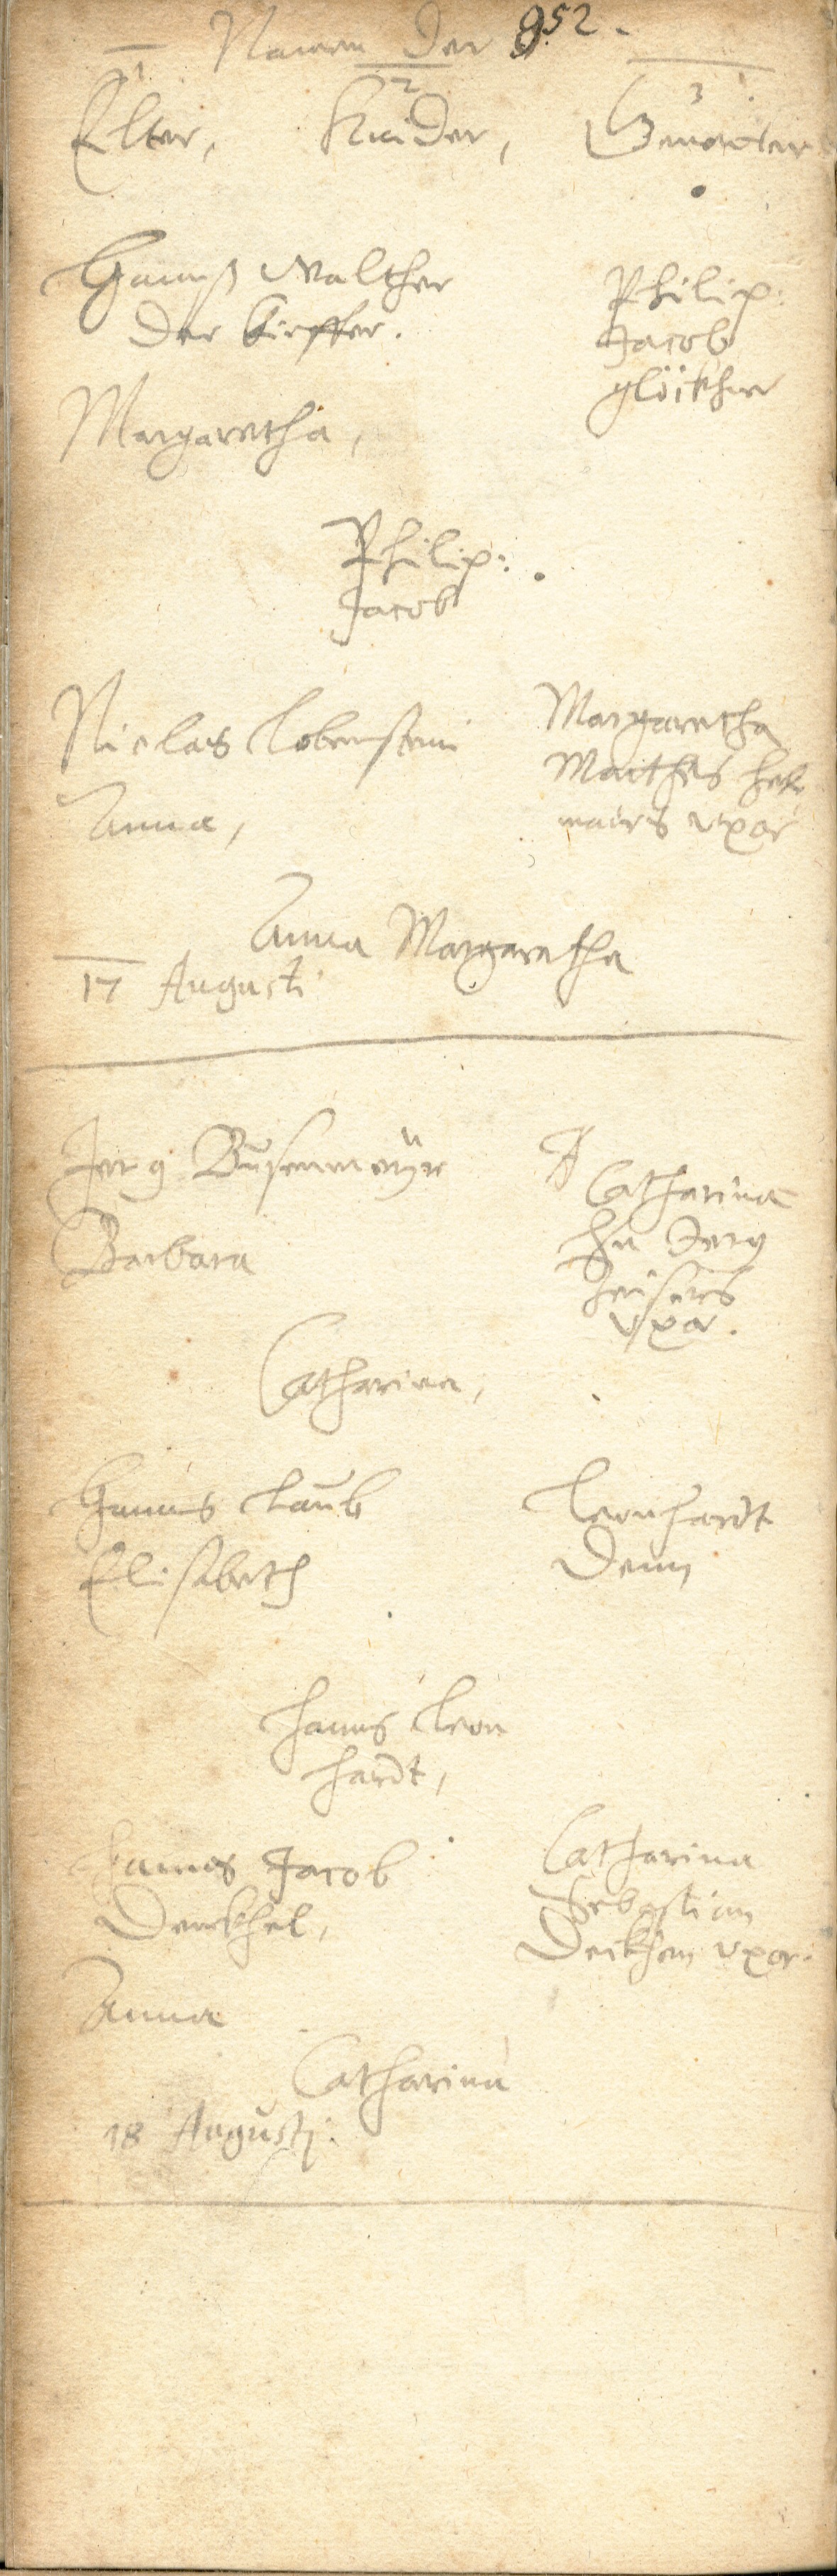 Namen der 952.
1 2 3
Elter, Kinder, Gevatter
Hannß Walther
der Kieffer.
Margaretha,
Philip:
Jacob
glöckhner
Philip:
Jacob
Niclas Lobenstein
Anna,
Margaretha
Matthes
maiers vxor
Anna Margaretha
17 Augusti
Jerg Busenmeÿr
Barbara
Catharina
Jerg
vxor.
Catharina,
Hanns Laub
Elisabeth
Leonhardt
Denn
Hanns Leon
hardt,
Hanns Jacob
Denckhel,
Anna
Catharina
Sebastian
vxor.
Catharina
18 Augustj.